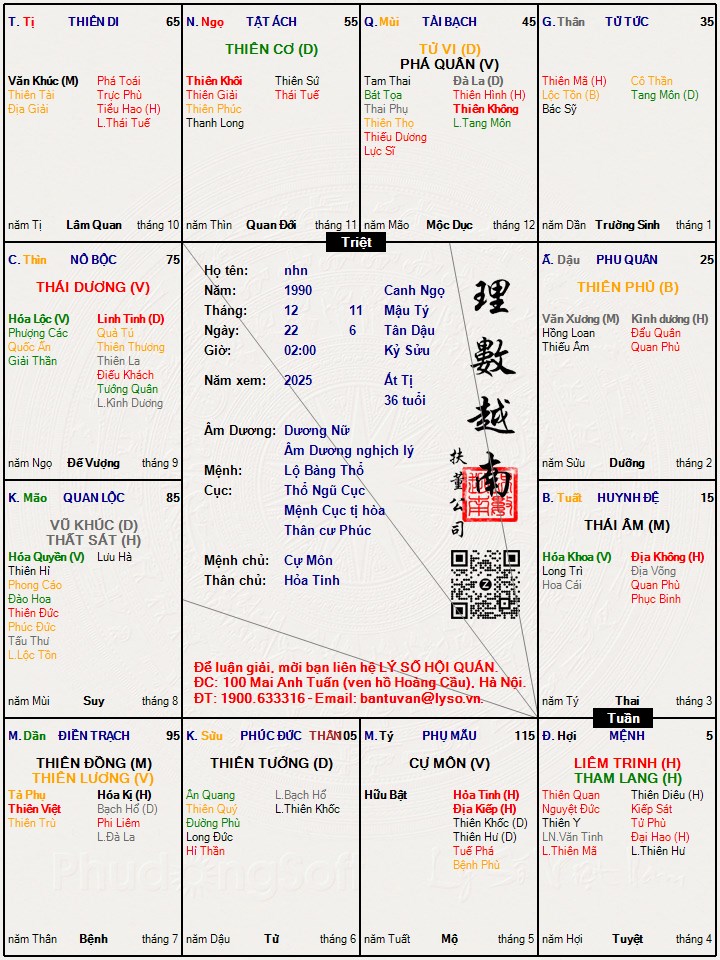 T. Tị THIÊN DI 65
Văn Khúc (M) Phá Toái
Thiên Tài Trực Phù
Địa Giải Tiểu Hao (H)
L.Thái Tuế
năm Tị Lâm Quan tháng 10
N. Ngọ TẬT ÁCH 55
THIÊN CƠ (D)
Thiên Khôi Thiên Sứ
Thiên Giải Thái Tuế
Thiên Phúc
Thanh Long
năm Thìn Quan Đới tháng 11
Q. Mùi TÀI BẠCH 45
TỬ VI (D)
PHÁ QUÂN (V)
Tam Thai Đà La (D)
Bát Tọa Thiên Hình (H)
Thai Phụ Thiên Không
Thiên Thọ L.Tang Môn
Thiếu Dương
Lực Sĩ
năm Mão Mộc Dục tháng 12
G. Thân TỬ TỨC 35
Thiên Mã (H) Cô Thần
Lộc Tồn (B) Tang Môn (D)
Bác Sỹ
năm Dần Trường Sinh tháng 1
Triệt
C. Thìn NÔ BỘC 75
THÁI DƯƠNG (V)
Hóa Lộc (V) Linh Tinh (D)
Phượng Các Quả Tú
Quốc Ấn Thiên Thương
Giải Thần Thiên La
Điếu Khách
Tướng Quân
L.Kình Dương
năm Ngọ Đế Vượng tháng 9
Họ tên: nhn
Năm: 1990 Canh Ngọ
Tháng: 12 11 Mậu Tý
Ngày: 22 6 Tân Dậu
Giờ: 02:00 Kỷ Sửu
Năm xem: 2025 Ất Tị
36 tuổi
Âm Dương: Dương Nữ
Âm Dương nghịch lý
Mệnh: Lộ Bàng Thổ
Cục: Thổ Ngũ Cục
Mệnh Cục tị hòa
Thân cư Phúc
Mệnh chủ: Cự Môn
Thân chủ: Hỏa Tinh
理數越南
扶董公司
Z
Để luận giải, mời bạn liên hệ LÝ SỐ HỘI QUÁN.
ĐC: 100 Mai Anh Tuấn (ven hồ Hoàng Cầu), Hà Nội.
ĐT: 1900.633316 - Email: bantuvan@lyso.vn.
Ấ. Dậu PHU QUÂN 25
THIÊN PHỦ (B)
Văn Xương (M) Kình dương (H)
Hồng Loan Đẩu Quân
Thiếu Âm Quan Phủ
năm Sửu Dưỡng tháng 2
K. Mão QUAN LỘC 85
VŨ KHÚC (D)
THẤT SÁT (H)
Hóa Quyền (V) Lưu Hà
Thiên Hỉ
Phong Cáo
Đào Hoa
Thiên Đức
Phúc Đức
Tấu Thư
L.Lộc Tồn
năm Mùi Suy tháng 8
B. Tuất HUYNH ĐỆ 15
THÁI ÂM (M)
Hóa Khoa (V) Địa Không (H)
Long Trì Địa Võng
Hoa Cái Quan Phù
Phục Binh
năm Tý Thai tháng 3
Tuần
M. Dần ĐIỀN TRẠCH 95
THIÊN ĐỒNG (M)
THIÊN LƯƠNG (V)
Tả Phụ Hóa Kị (H)
Thiên Việt Bạch Hổ (D)
Thiên Trù Phi Liêm
L.Đà La
năm Thân Bệnh tháng 7
K. Sửu PHÚC ĐỨC THÂN 105
THIÊN TƯỚNG (D)
Ân Quang L.Bạch Hổ
Thiên Quý L.Thiên Khốc
Đường Phù
Long Đức
Hỉ Thần
năm Dậu Tử tháng 6
M. Tý PHỤ MẪU 115
CỰ MÔN (V)
Hữu Bật Hỏa Tinh (H)
Địa Kiếp (H)
Thiên Khốc (D)
Thiên Hư (D)
Tuế Phá
Bệnh Phù
năm Tuất Mộ tháng 5
Đ. Hợi MỆNH 5
LIÊM TRINH (H)
THAM LANG (H)
Thiên Quan Thiên Diêu (H)
Nguyệt Đức Kiếp Sát
Thiên Y Tử Phù
LN.Văn Tinh Đại Hao (H)
L.Thiên Mã L.Thiên Hư
năm Hợi Tuyệt tháng 4